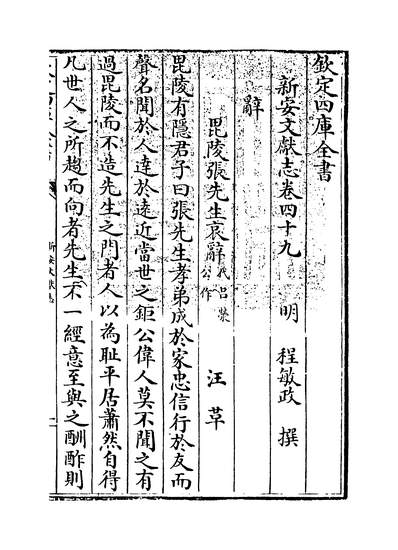 欽定四庫全書
新安文獻志卷四十九 明 程敏政 撰
辭
毘陵張先生哀辭 代呂榮公作 汪革
毘陵有隱君子曰張先生孝弟成於家忠信行於友而
聲名聞於人達於遠近當世之鉅公偉人莫不聞之有
過毘陵而不造先生之門者人以為恥平居蕭然自得
凡世人之所趨而向者先生不一經意至與之酬酢則